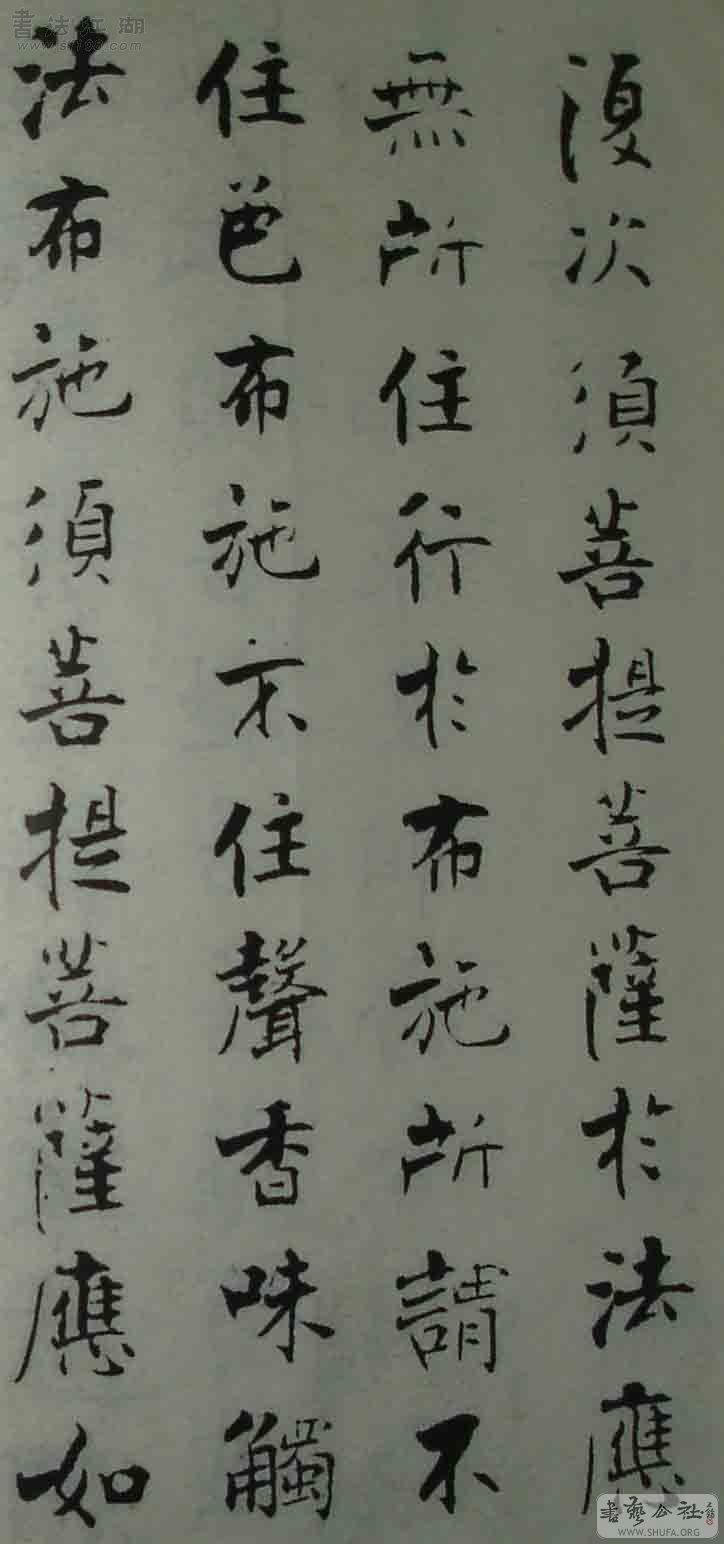 復次須菩提菩薩於法應
無所住行於布施所請不
住色布施不住聲香味觸
法布施須菩提菩薩應如
書法江湖
書藝公社
WWW.SHUFA.ORG